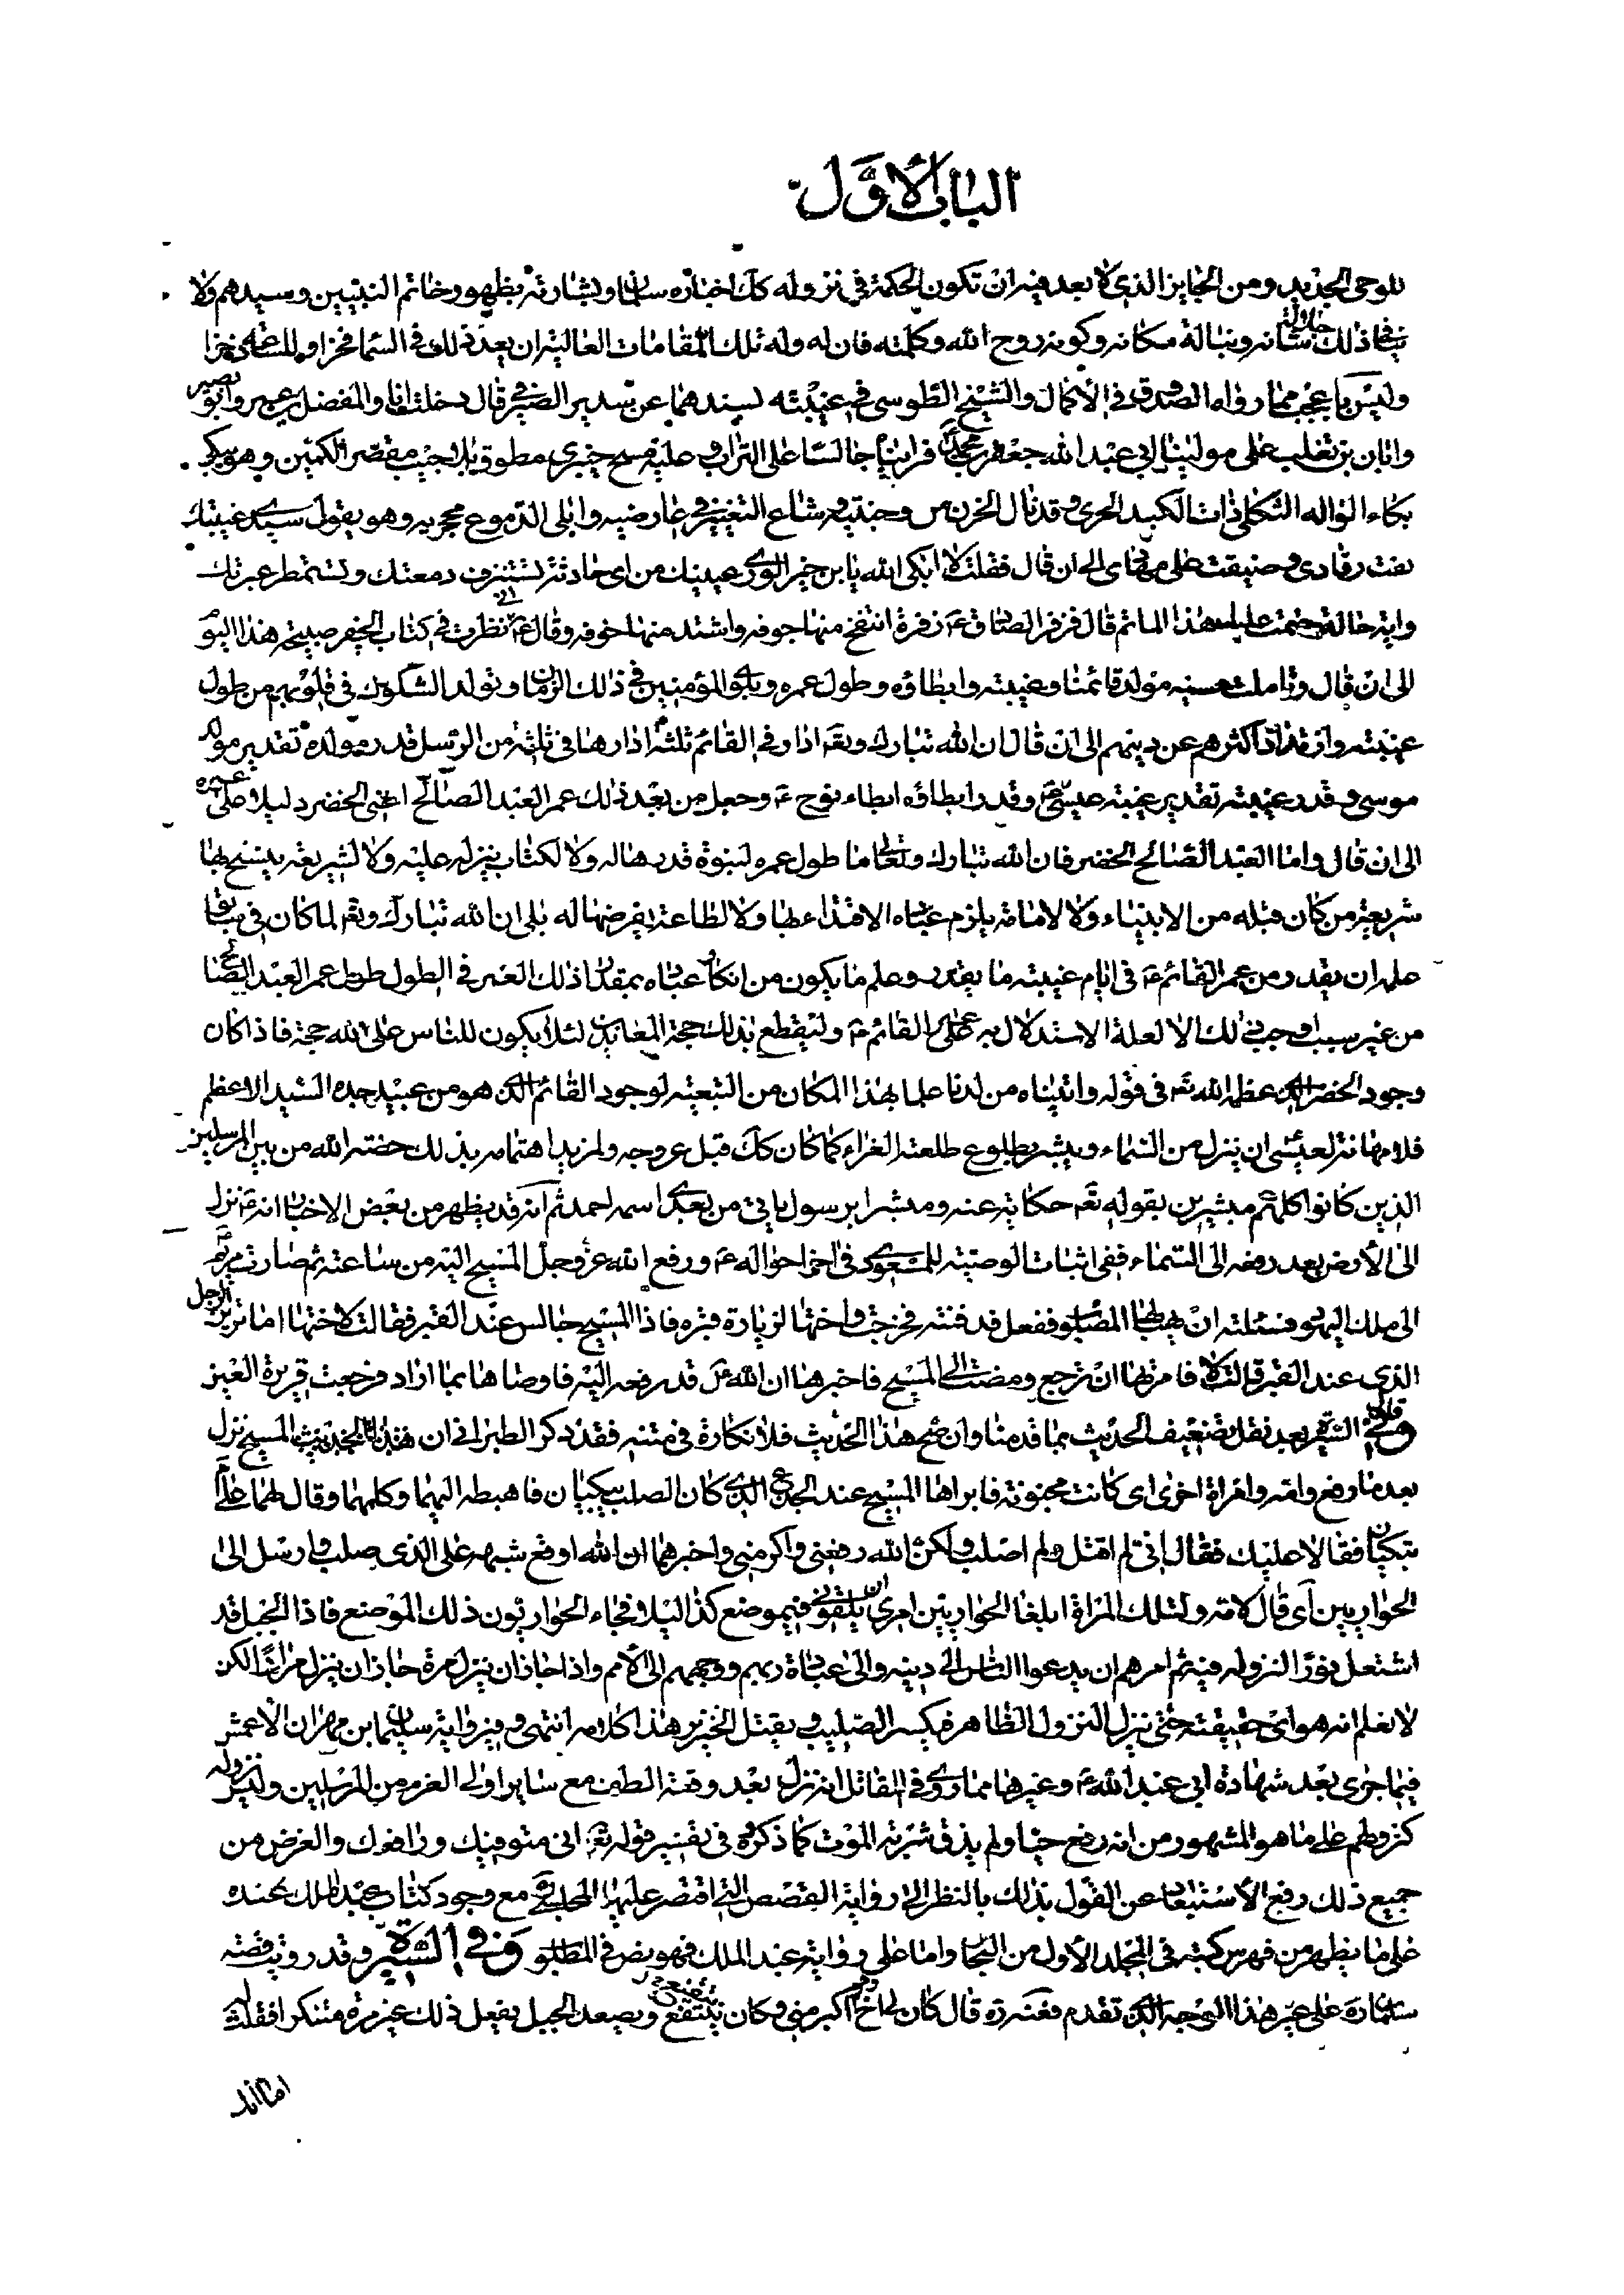 الباب الأوَّل
للوحى الجديد ومن الجايز الذى لا بعد فيه ان تكون الحكمة فى نزوله كك اخباره سلمان وبشارته بظهور خاتم النبيين وسيدهم ولا
ينافى ذلك جلالة شانه ونبالة مكانه وكونه روح الله وكلمته فان له وله تلك المقامات العالية ان يعد ذلك فى السماء فخرا وللساعى
وليس باعجب مما رواه الصدوق فى الاكمال والشيخ الطوسى فى غيبته بسندهما عن سدير الصيرفى قال دخلت انا والمفضل بن عمر وابو بصير
وابان بن تغلب على مولينا ابى عبد الله جعفر بن محمد فرايناه جالسا على التراب وعليه مسح خيبرى مطوق بلا جيب مقصر الكمين وهو يبكى
بكاء الواله الثكلى ذات الكبد الحرى قد نال الحزن من وجنتيه وشاع التغيير فى عارضيه وابلى الدموع محجريه وهو يقول سيدى غيبتك
نفت رقادى وضيقت على مهادى الى ان قال فقلت لا ابكى الله يا بن خير الورى عينيك من اى حادثة تستنزف دمعتك وتستمطر عبرتك
واية حالة حتمت عليك هذا الماتم قال فزفر الصادق ع زفرة انتفخ منها جوفه واشتد منها خوفه وقال انى نظرت فى كتاب الجفر صبيحة هذا اليوم
الى ان قال وتاملت فيه مولد قائمنا وغيبته وابطاؤه وطول عمره وبلوى المؤمنين فى ذلك الزمان وتولد الشكوك فى قلوبهم من طول
غيبته وارتداد اكثرهم عن دينهم الى ان قال ان الله تبارك وتعه ادار فى القائم ثلثة ادارها فى ثلثة من الرسل قدر مولده تقدير مولد
موسى وقدر غيبته تقدير غيبة عيسى وقدر ابطاؤه ابطاء نوح ع وجعل من بعد ذلك عمر العبد الصالح اعنى الخضر دليلا على عمره
الى ان قال واما العبد الصالح الخضر فان الله تبارك وتعالى ما طول عمره لنبوة قدرها له ولا لكتاب ينزله عليه ولا لشريعة ينسخ بها
شريعة من كان قبله من الانبياء ولا لامامة يلزم عباده الاقتداء بها ولا لطاعة يفرضها له بلى ان الله تبارك وتعه لما كان فى سابق
علمه ان يقدر من عمر القائم ع فى ايام غيبته ما يقدر وعلم ما يكون من انكار عباده بمقدار ذلك العمر فى الطول طول عمر العبد الصالح
من غير سبب اوجب ذلك الا لعلة الاستدلال به على عمر القائم ع وليقطع بذلك حجة المعاندين لئلا يكون للناس على الله حجة فاذا كان
وجود الخضر الذى عظمه الله تعه فى قوله واتيناه من لدنا علما بهذا المكان من التبعية لوجود القائم الذى هو من عبيد جده السيد الاعظم
فلا مهانة لعيسى ان ينزل من السماء ويبشر بطلوع طلعته الغراء كما كان كك قبل عروجه ولمزيد اهتمامه بذلك خصه الله من بين المرسلين
الذين كانوا كلهم مبشرين بقوله تعه حكاية عنه ومبشرا برسول ياتى من بعدى اسمه احمد ثم انه قد يظهر من بعض الاخبار انه ع نزل
الى الأرض بعد رفعه الى السماء ففى اثبات الوصية للمسعودى فى اخر احواله ع ورفع الله عز وجل المسيح اليه من ساعته ثم صارت مريم
الى ملك اليهود فسئلته ان يهب لها المصلوب ففعل فدفنته فخرجت واختها لزيارة قبره فاذا المسيح جالس عند القبر فقالت لاختها اما ترين الرجل
الذى عند القبر قالت لا فامرتها ان ترجع ومضت الى المسيح فاخبرها ان الله عز وجل قد رفعه اليه فاوصاها بما اراد فرجعت قريرة العين
وفى السيرة بعد نقل تضعيف الحديث بما قدمنا وان صح هذا الحديث فلا نكارة فى متنه فقد ذكر الطبرانى ان المسيح نزل
بعد ما رفع وامه وامراة اخرى اى كانت مجنونة فابراها المسيح عند الجذع الذى كان الصلب يبكيان فاهبط اليهما وكلمهما وقال لهما علام
تبكيان فقالا عليك فقال انى لم اقتل ولم اصلب ولكن الله رفعنى واكرمنى واخبرهما ان الله اوقع شبهه على الذى صلب وارسل الى
الحواريين اى قال لامه ولتلك المراة ابلغا الحواريين امرى ان يلقونى فى موضع كذا ليلا فجاء الحواريون ذلك الموضع فاذا الجبل قد
اشتعل نورا لنزوله فيه ثم امرهم ان يدعوا الناس الى دينه والى عبادة ربهم ووجههم الى الامم واذا جاز ان ينزل مرة جاز ان ينزل مرارا لكن
لا نعلم انه هو اى حقيقته حتى ينزل النزول الظاهر فيكسر الصليب ويقتل الخنزير هذا كلامه انتهى وفى رواية سليمان بن مهران الاعمش
فيما جرى بعد شهادة ابى عبد الله ع وغيرها مما روى فى المقاتل انه نزل بعد وقعة الطف مع ساير اولى العزم من المرسلين وليس نزوله
كنزولهم على ما هو المشهور من انه رفع حيا ولم يذق شربة الموت كما ذكروه فى تفسير قوله تعه انى متوفيك ورافعك والغرض من
جميع ذلك رفع الاستبعاد عن القول بذلك بالنظر الى رواية القصص التى اقتصر عليها المجلسى مع وجود كتاب عبد الملك عنده
على ما يظهر من فهرس كتبه فى المجلد الأول من البحار واما على رواية عبد الملك فهو نص فى المطلوب وفى السيرة وقد رويت قصة
سلمان ره على غير هذا الوجه الذى تقدم فعنه ره قال كان لى اخ اكبر منى وكان يتقنع بثوبه ويصعد الجبل يفعل ذلك غير مرة متنكرا فقلت له
اما انك